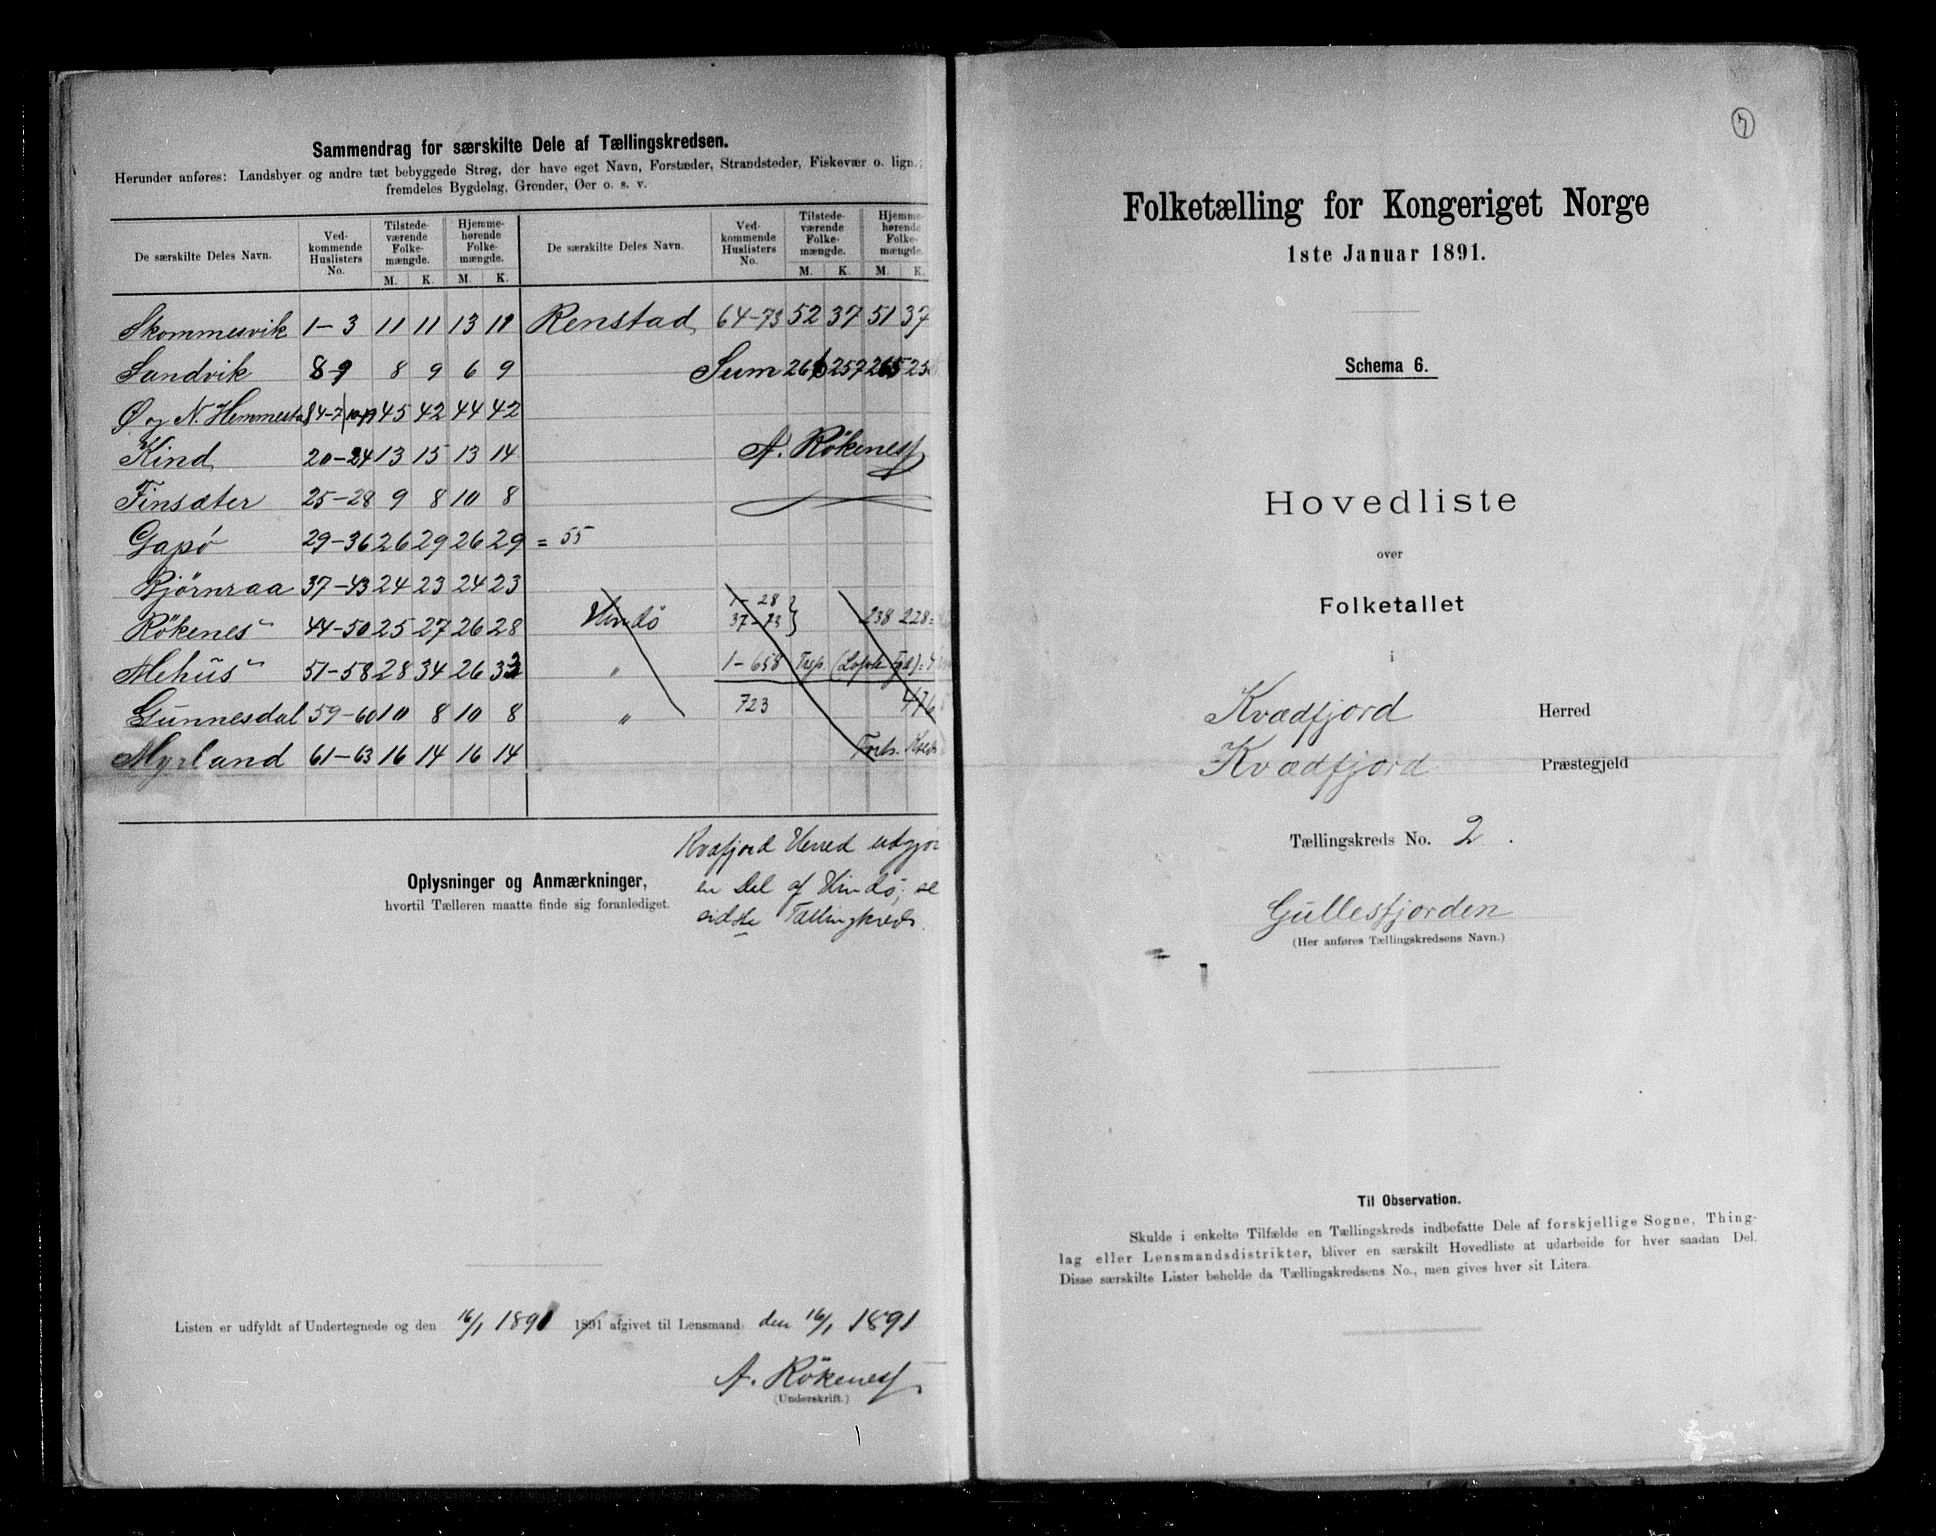 Sammendrag for særskilte Dele af Tællingskredsen.
Herunder anføres: Landsbyer og andre tæt bebyggede Strøg, der have eget Navn, Forstæder, Strandsteder, Fiskevær o. lign.;
fremdeles Bygdelag, Grender, Øer o. s. v.
De særskilte Deles Navn. Ved-kommende Huslisters No. Tilstede-værende Folke-mængde. M. K. Hjemme-hørende Folke-mængde. M. K. De særskilte Deles Navn. Ved-kommende Huslisters No. Tilstede-værende Folke-mængde. M. K. Hjemme-hørende Folke-mængde. M. K.
Skommesvik 1-3 11 11 13 11 Renstad 64-73 52 37 51 37
Sandvik 8-9 8 9 6 9 Sum 257 265
Ø og N. Hemmestad 4-7 10-19 45 42 44 42
Kind 20-24 13 15 13 14 A. Rökenes
Finsæter 25-28 9 8 10 8
Gapø 29-36 26 29 26 29 = 55
Bjørnraa 37-43 24 23 24 23
Rökenes 44-50 25 27 26 28 Hindö 1-28 37-73 } 238 228
Mehüs 51-58 28 34 26 " 1-658
Günnesdal 59-60 10 8 10 8 " 723
Myrland 61-63 16 14 16 14
Kvæfjord Herred udgjør
en Del af Hindö, se
sidste Tællingkreds.
Oplysninger og Anmærkninger,
hvortil Tælleren maatte finde sig foranlediget.
Listen er udfyldt af Undertegnede og den 16/1 1891 1891 afgivet til Lensmand den 16/1 1891
A. Rökenes
(Underskrift.)
7
Folketælling for Kongeriget Norge
1ste Januar 1891.
Schema 6.
Hovedliste
over
Folketallet
i
Kvædfjord Herred
Kvædfjord Præstegjeld
Tællingskreds No. 2.
Güllesfjorden
(Her anføres Tællingskredsens Navn.)
Til Observation.
Skulde i enkelte Tilfælde en Tællingskreds indbefatte Dele af forskjellige Sogne, Thing-
lag eller Lensmandsdistrikter, bliver en særskilt Hovedliste at udarbeide for hver saadan Del.
Disse særskilte Lister beholde da Tællingskredsens No., men gives hver sit Litera.